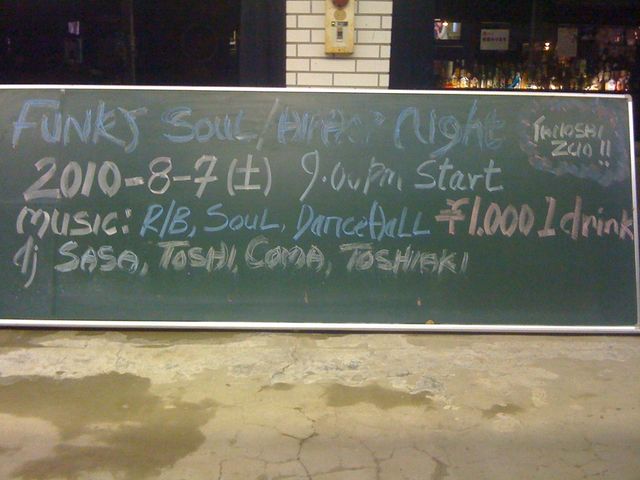 FUNKY SOUL/HIPHOP Night
2010-8-7(土) 9.00pm Start
MUSIC: R/B, SOUL, DanceHALL ¥1.000 1 drink
dj SASA, TOSHI, COMA, TOSHIAKI